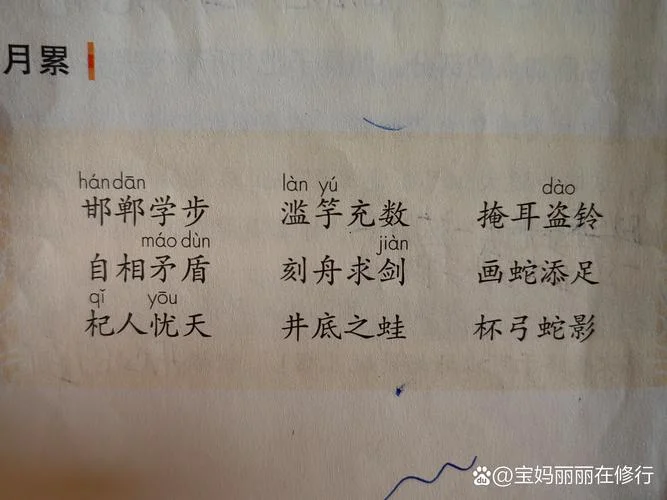 月累
hándān làn yú dào
邯郸学步 滥竽充数 掩耳盗铃
máo dùn jiàn
自相矛盾 刻舟求剑 画蛇添足
qǐ yōu
杞人忧天 井底之蛙 杯弓蛇影
@宝妈丽丽在修行